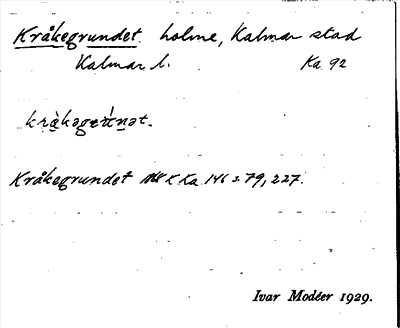 Kråkegrundet. holme, Kalmar stad
Kalmar l. Ka 92
Kråkegrundet K Ka 146 s. 79, 227.
Ivar Modéer 1929.